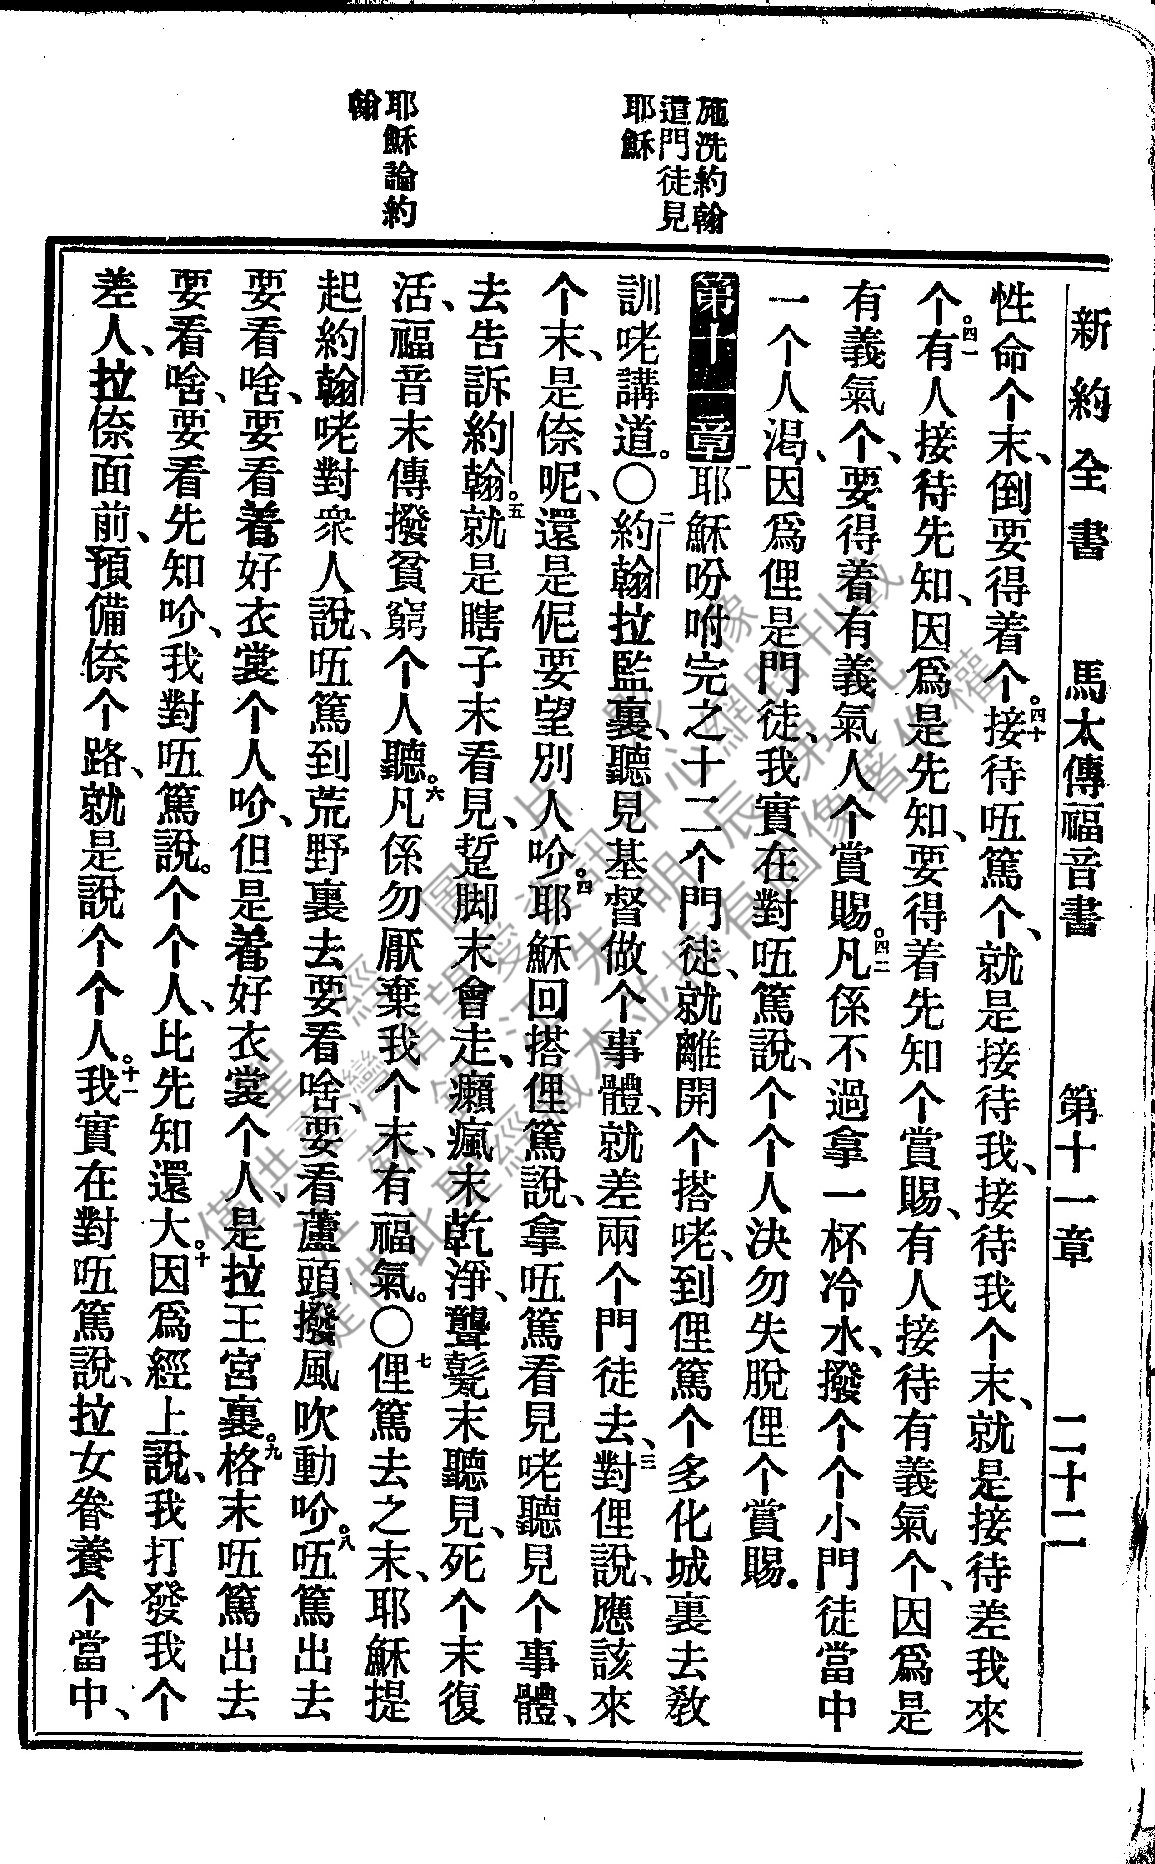 新約全書 馬太傳福音書 第十一章 二十二
性命个末、倒要得着个。四十接待𠲎篤个、就是接待我、接待我个末、就是接待差我來
个。四一有人接待先知、因爲是先知、要得着先知个賞賜、有人接待有義氣个、因爲是
有義氣个、要得着有義氣人个賞賜。四二凡係不過拿一杯冷水、撥个个小門徒當中
一个人渴、因爲俚是門徒、我實在對𠲎篤說、个个人決勿失脫俚个賞賜。
第十一章 一耶穌吩咐完之十二个門徒、就離開个搭咾、到俚篤个多化城裏去敎
訓咾講道。〇二約翰拉監裏、聽見基督做个事體、就差兩个門徒去、三對俚說、應該來
个末、是倷呢、還是伲要望別人吤。四耶穌回搭俚篤說、拿𠲎篤看見咾聽見个事體、
去告訴約翰。五就是瞎子末看見、蹩脚末會走、癩瘋末乾淨、聾髭末聽見、死个末復
活、福音末傳撥貧窮个人聽。六凡係勿厭棄我个末、有福氣。〇七俚篤去之末、耶穌提
起約翰咾對衆人說、𠲎篤到荒野裏去要看啥、要看蘆頭撥風吹動吤。八𠲎篤出去
要看啥、要看着好衣裳个人吤、但是着好衣裳个人、是拉王宮裏。九格末𠲎篤出去
要看啥、要看先知吤、我對𠲎篤說。个个人、比先知還大。十因爲經上說、我打發我个
差人、拉倷面前、預備倷个路、就是說个个人。十一我實在對𠲎篤說、拉女眷養个當中、
施洗約翰
遣門徒見
耶穌
耶穌論約
翰